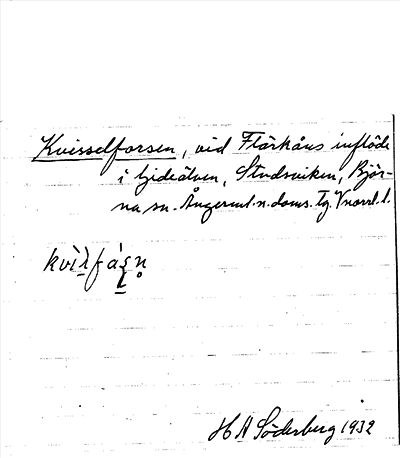 Kvisselforsen, vid Flärkåns inflöde
i Gideälven, Studsviken, Björ-
na sn. Ångerml.n.doms. Tg. Vnorrl.l.
H A Söderberg 1932